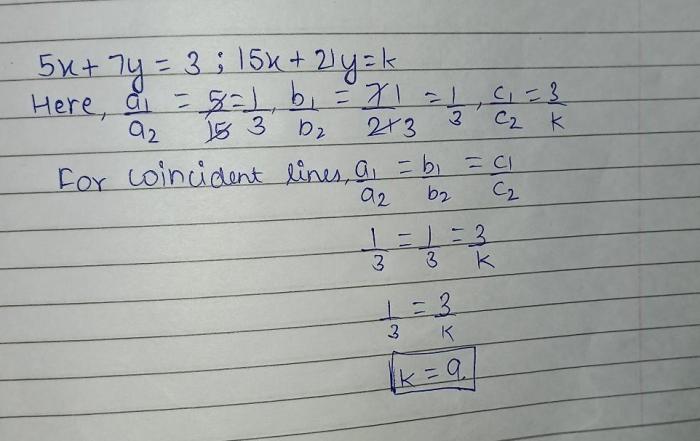 5x + 7y = 3 ; 15x + 21y = k
Here, a₁/a₂ = 5/15 = 1/3, b₁/b₂ = 7 1/21 3 = 1/3, c₁/c₂ = 3/k
For coincident lines, a₁/a₂ = b₁/b₂ = c₁/c₂
1/3 = 1/3 = 3/k
1/3 = 3/k
k = 9